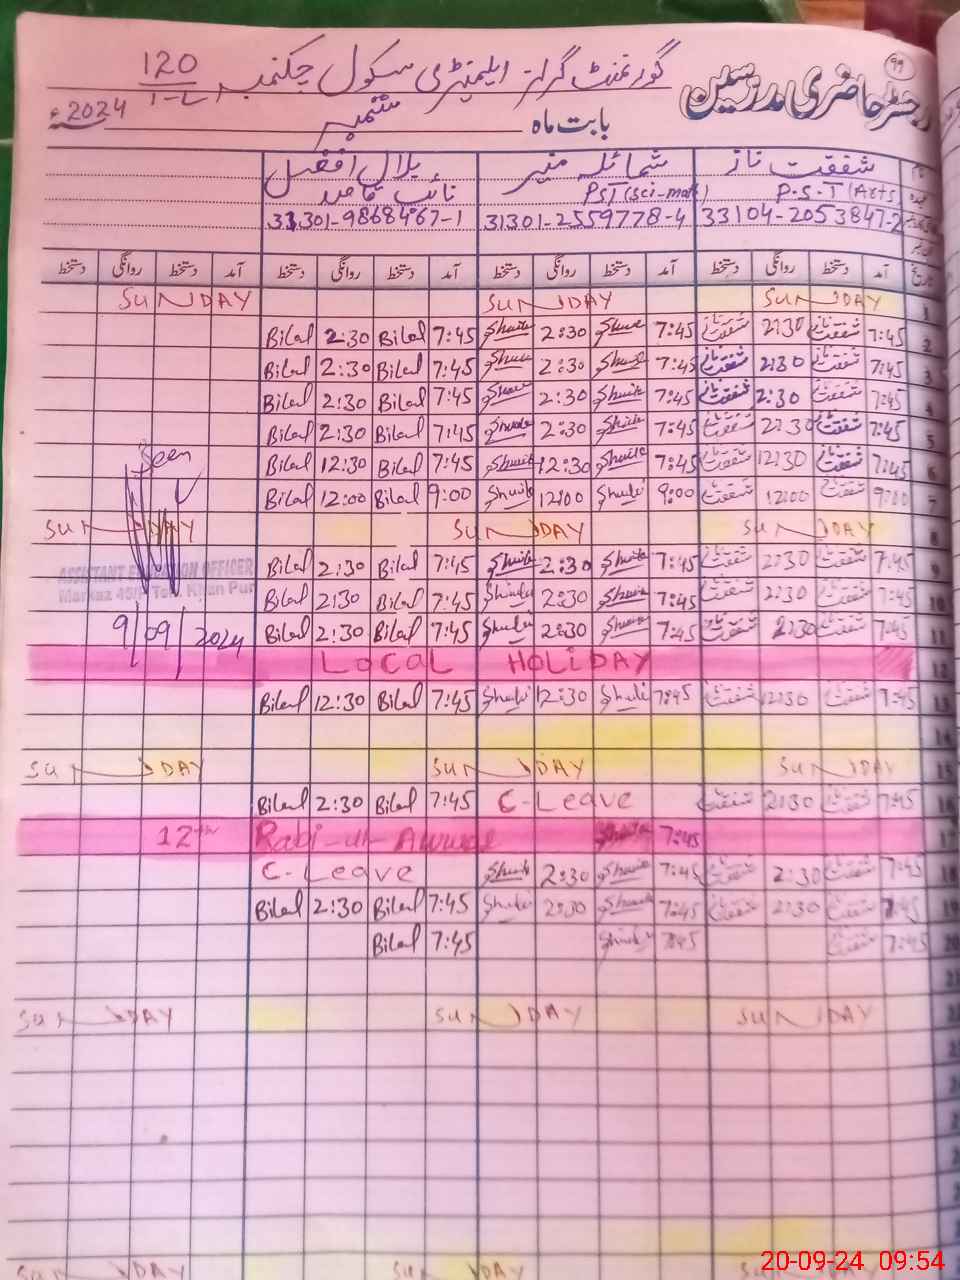 99
رجسٹر حاضری مدرسین گورنمنٹ گرلز ایلیمنٹری سکول چکنمبر 120
بابت ماہ ستمبر 2024ء
شفقت ناز شمائلہ منیر بلال افضل
P.S.T (Arts) PST (Sci-math) نائب قاصد
33104-2053847-2 31301-2559778-4 33301-9868467-1
آمد دستخط روانگی دستخط آمد دستخط روانگی دستخط آمد دستخط روانگی دستخط آمد دستخط روانگی دستخط
1 SUNDAY SUNDAY SUNDAY
2 7:45 شفقت ناز 2:30 شفقت ناز 7:45 2:30 7:45 Bilal 2:30 Bilal
3 7:45 شفقت ناز 2:30 شفقت ناز 7:45 2:30 7:45 Bilal 2:30 Bilal
4 7:45 شفقت ناز 2:30 شفقت ناز 7:45 2:30 7:45 Bilal 2:30 Bilal
5 7:45 شفقت ناز 2:30 شفقت ناز 7:45 2:30 7:45 Bilal 2:30 Bilal
6 7:45 شفقت ناز 12:30 شفقت ناز 7:45 12:30 7:45 Bilal 12:30 Bilal
Seen
7 9:00 شفقت ناز 12:00 شفقت ناز 9:00 12:00 9:00 Bilal 12:00 Bilal
8 SUNDAY SUNDAY SUNDAY
9 7:45 شفقت ناز 2:30 شفقت ناز 7:45 2:30 7:45 Bilal 2:30 Bilal
ASSISTANT EDUCATION OFFICER
10 7:45 شفقت ناز 2:30 شفقت ناز 7:45 2:30 7:45 Bilal 2:30 Bilal
Khan Pur
11 7:45 شفقت ناز 2:30 شفقت ناز 7:45 2:30 7:45 Bilal 2:30 Bilal
9/09/2024
12 LOCAL HOLIDAY
13 7:45 شفقت ناز 12:30 شفقت ناز 7:45 12:30 7:45 Bilal 12:30 Bilal
14
15 SUNDAY SUNDAY SUNDAY
16 7:45 شفقت ناز 2:30 شفقت ناز C-Leave 7:45 Bilal 2:30 Bilal
17 12th Rabi-ul-Awwal 7:45
18 7:45 شفقت ناز 2:30 شفقت ناز 7:45 2:30 C-Leave
19 7:45 شفقت ناز 2:30 شفقت ناز 7:45 2:30 7:45 Bilal 2:30 Bilal
20 7:45 شفقت ناز 7:45 7:45 Bilal
SUNDAY SUNDAY SUNDAY
SUNDAY SUNDAY SUNDAY
20-09-24 09:54